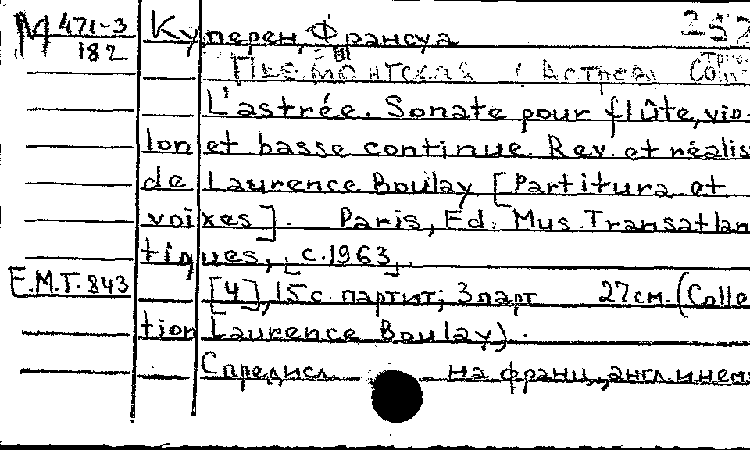 М 471-3 Куперен, Франсуа 252
182
Пьемонтская (Астрея)
L'astrée. Sonate pour flûte, vio-
lon et basse continue. Rev. et réalis
de Laurence Boulay [Partitura et
voixes]. Paris, Ed. Mus. Transatlan
tiques, [c. 1963].
E.M.T. 843 [4], 15 с. партит; 3 парт 27см. (Colle
tion Laurence Boulay).
С предисл на франц., англ. и нем